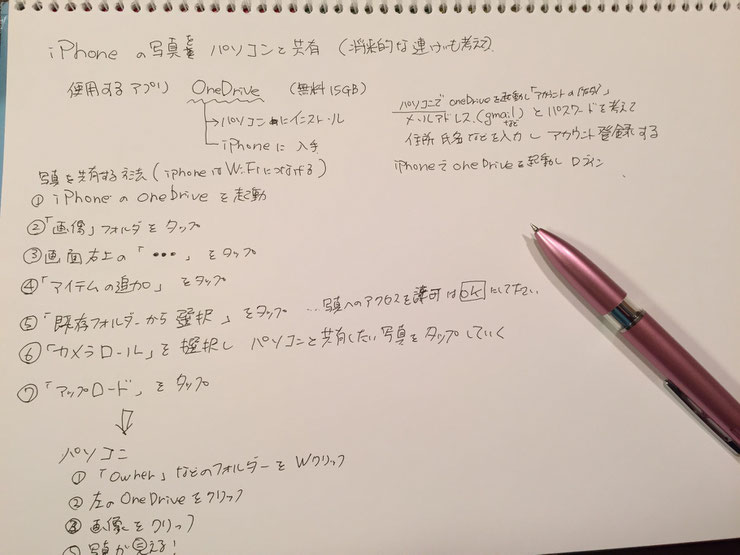 iPhone の写真を パソコンと共有 (将来的な連けいも考えて)
使用するアプリ OneDrive (無料15GB)
→パソコンにインストール
→iPhoneに入手
パソコンで oneDriveを起動し「アカウントの作成」
メールアドレス(gmailなど)とパスワードを考えて
住所氏名などを入力しアカウント登録する
iPhoneで oneDriveを起動し ログイン
写真を共有する方法 (iphoneはWi-Fiにつなげる)
① iPhoneの oneDriveを起動
②「画像」フォルダをタップ
③画面右上の「•••」をタップ
④「アイテムの追加」をタップ
⑤「既存フォルダーから選択」をタップ …写真へのアクセスを許可はOKにして下さい
⑥「カメラロール」を選択し パソコンと共有したい写真をタップしていく
⑦「アップロード」をタップ
パソコン
①「Owner」などのフォルダーをWクリック
②左のOneDriveをクリック
③画像をクリック
⑤写真が見える!